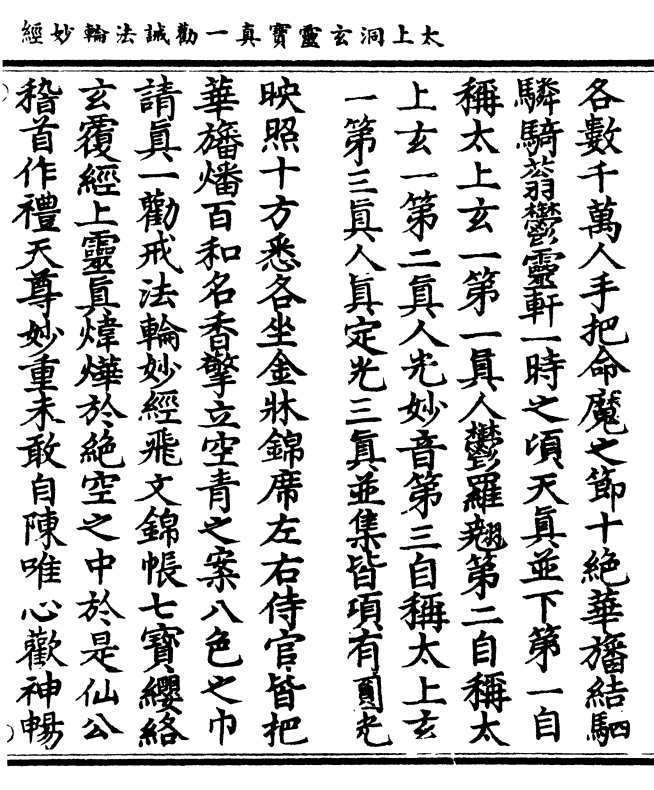 太上洞玄靈寶真一勸誡法輪妙經
各數千萬人手把命魔之節十絶華旛結駟
驎騎蓊鬱靈軒一時之頃天真並下第一自
稱太上玄一第一真人鬱羅翹第二自稱太
上玄一第二真人光妙音第三自稱太上玄
一第三真人真定光三真並集皆項有圓光
映照十方悉各坐金牀錦席左右侍官皆把
華旛燔百和名香擎立空青之案八色之巾
請真一勸戒法輪妙經飛文錦帳七寶纓絡
玄覆經上靈真煒燁於絶空之中於是仙公
稽首作禮天尊妙重未敢自陳唯心歡神暢